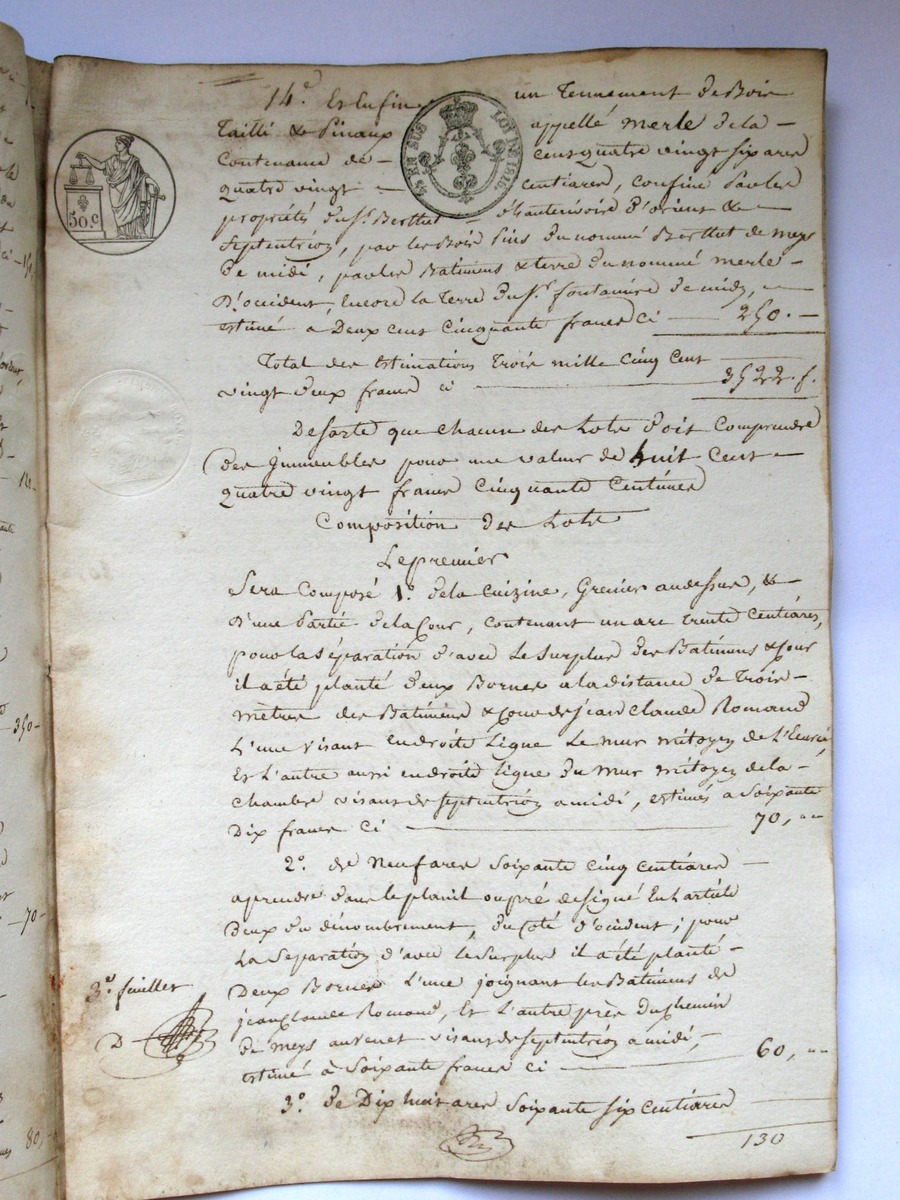 14.º Et enfin un Tennement de Bois
Taillé & Pinaux appellé merle de la
Contenance de cens quatre vingt six ares
quatre vingt centiares, confiné par les
propriétés du S.r Berthet d'orient &
Septentrion, par les Bois Pins du nommé Berthet de meys
de midi, par les Batimens & terre du nommé merle
D'occident, encore la Terre du S.r fontanire de midi,
estimé à Deux cent cinquante francs ci 250.
Total des Estimations Trois mille cinq Cent
vingt deux francs ci 3522. f.
De sorte que chacun des Lots doit Comprendre
des Immeubles pour une valeur de huit Cent
quatre vingt francs Cinquante Centimes
Composition des Lots
Le premier
Sera Composé 1.º de la Cuizine, Grenier au dessus, &
D'une Partie de la Cour, contenant un are trente Centiares,
pour la séparation d'avec Le Surplus des Batimens & Cour
il a été planté deux Bornes a la distance de Trois
mètres des Batimens & Cour de jean Claude Romand
L'une visant en droite Ligne Le mur mitoyen de L'Ecurie
Et L'autre aussi en droite Ligne du mur mitoyen de la
chambre visans de septentrion a midi, estimés a Soixante
Dix francs Ci 70,
2.º de neuf ares Soixante cinq centiares
a prendre dans le planil ou pré designé En L'article
Deux du dénombrement, du Coté d'occident ; pour
La Separation d'avec Le Surplus il a été planté
Deux Bornes L'une joignant les Batimens de
jean Claude Romand, Et L'autre près du Chemin
de meys visans de septentrion a midi,
estimé à Soixante francs ci 60,
3.º de Dix huit ares Soixante six Centiares
130
3.e feuillet
D
50. c
LOI DE 1816
350
70
80